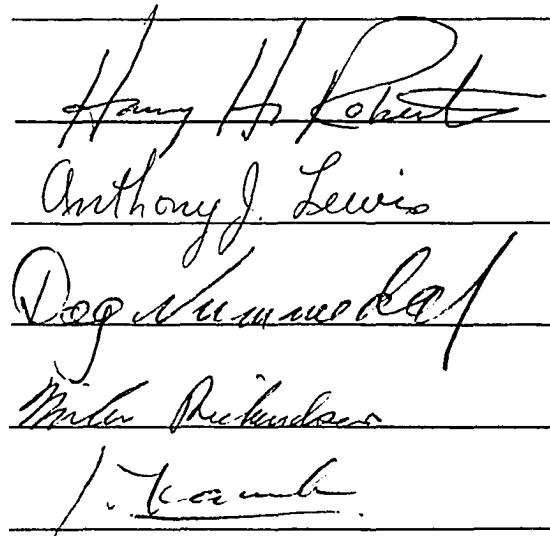 Harry H. Roberts
Anthony J. Lewis
Dag Nummedal
Richardson